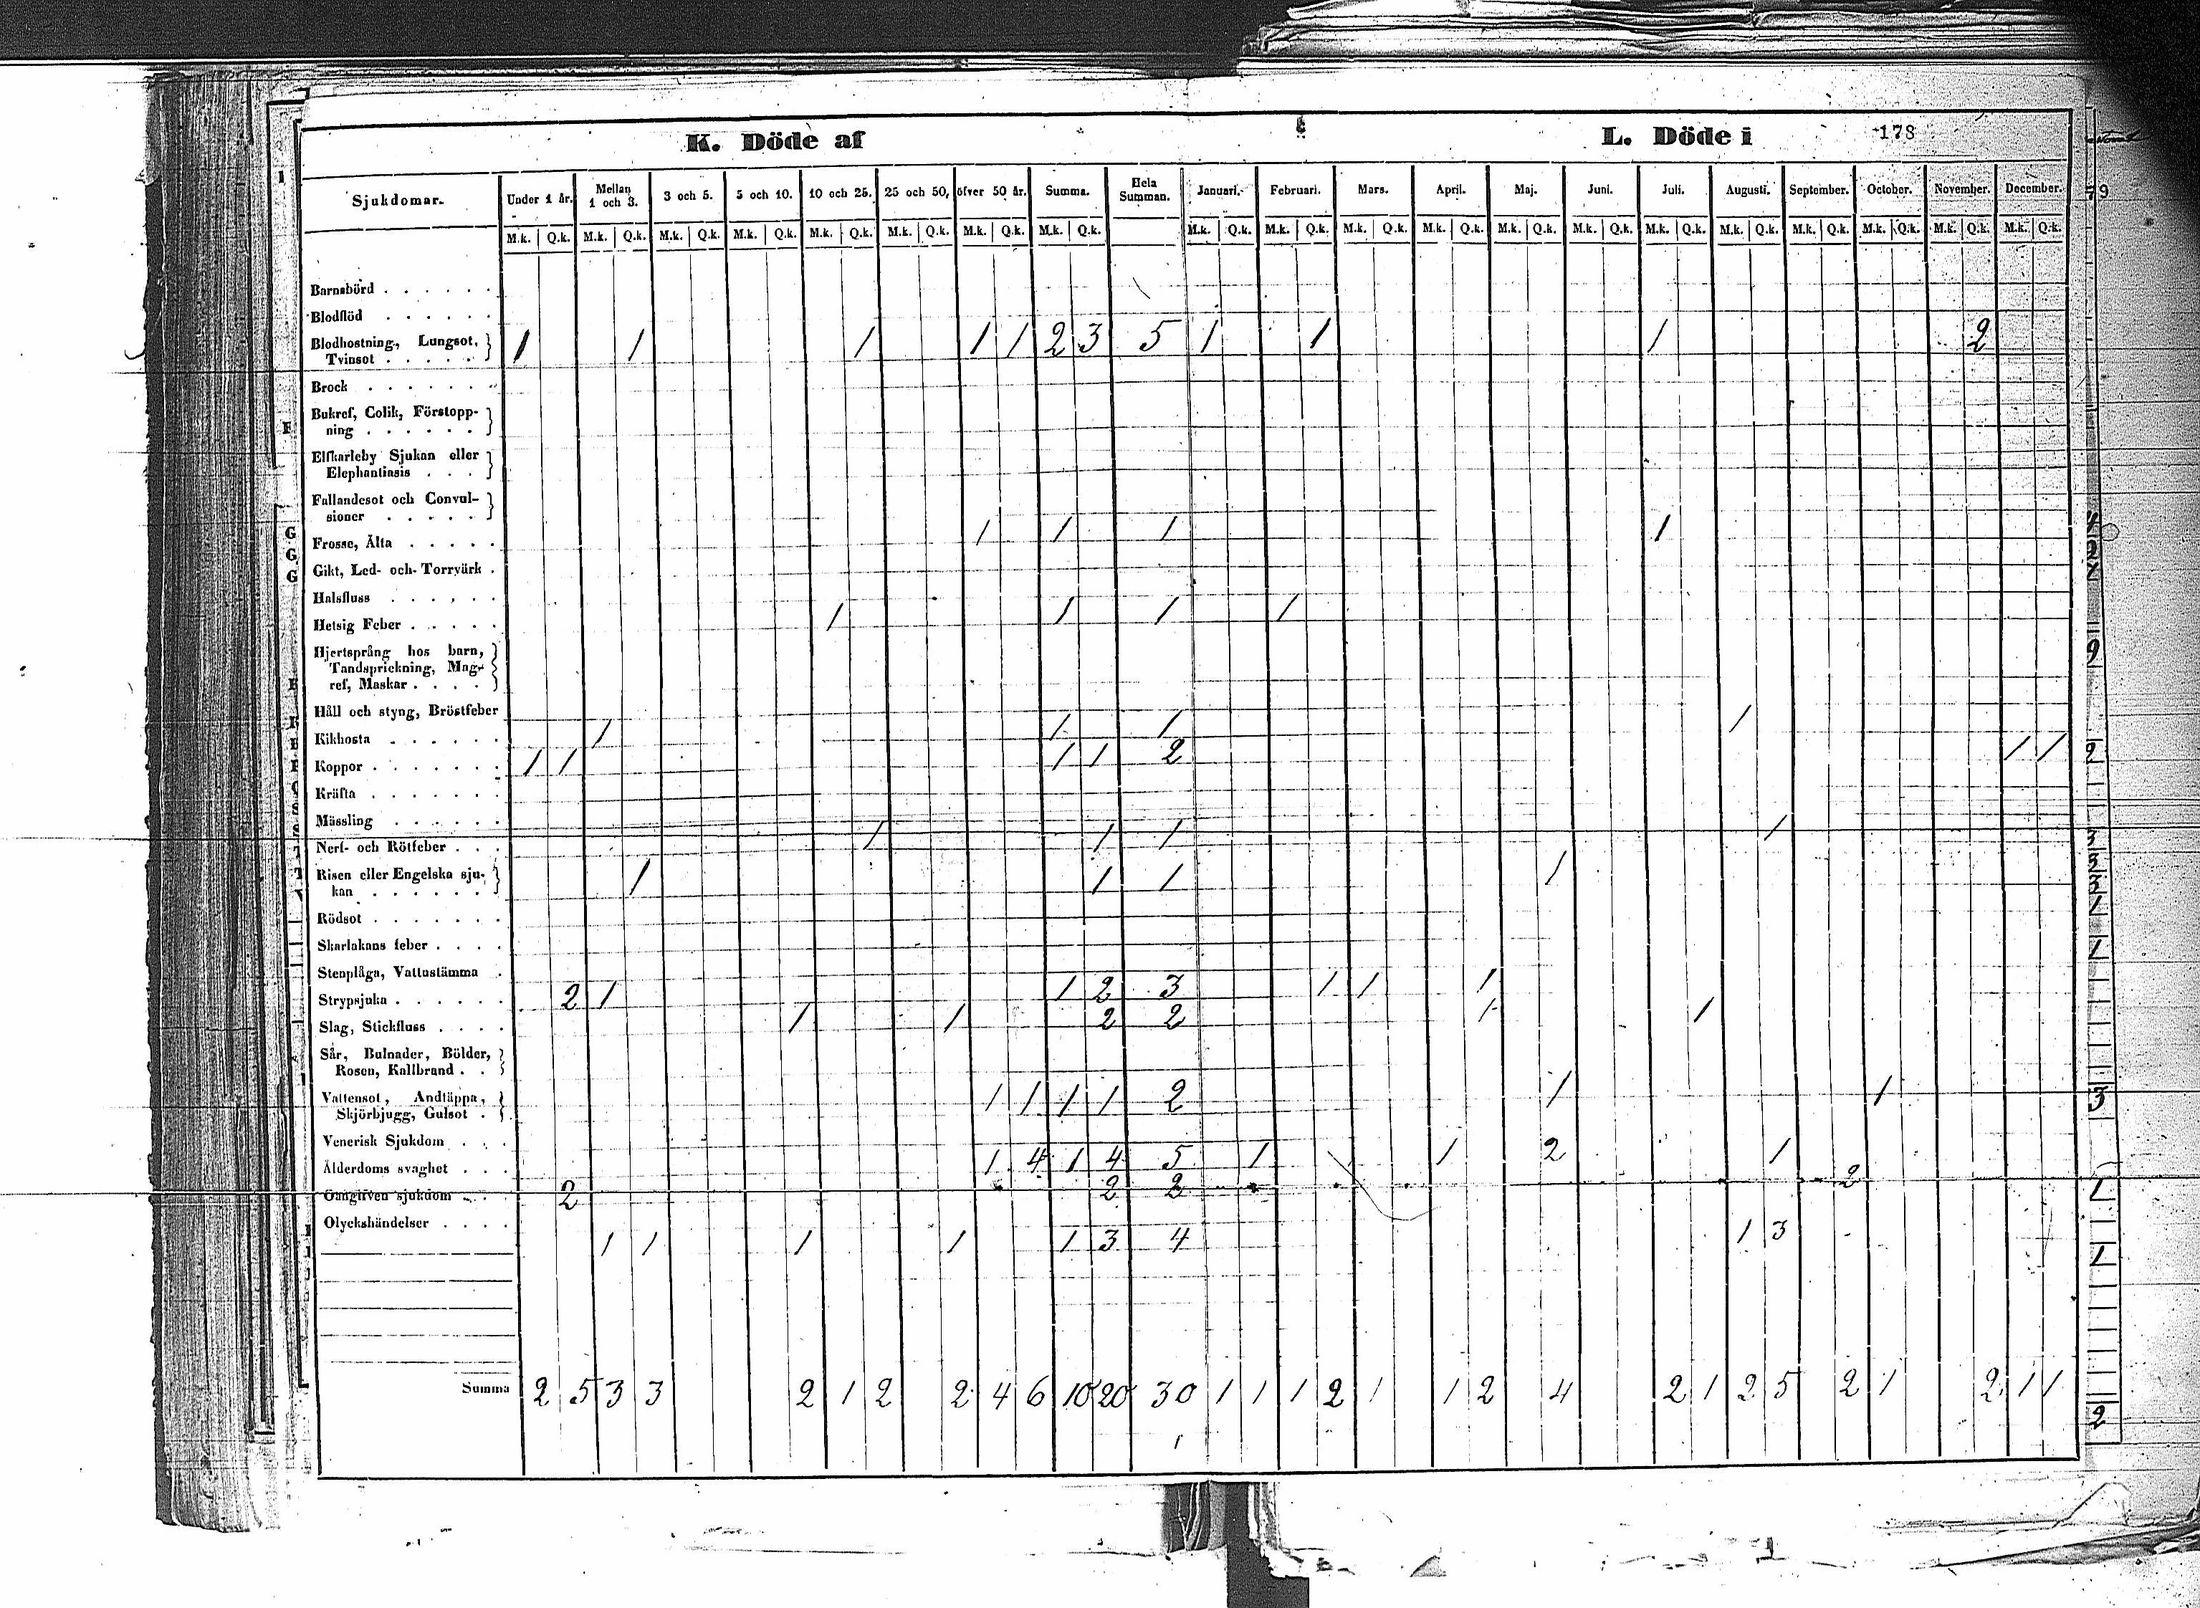 K. Döde af
L. Döde i 178
Sjukdomar. Under 1 år. Mellan 1 och 3. 3 och 5. 5 och 10. 10 och 25. 25 och 50. öfver 50 år. Summa. Hela Summan. Januari. Februari. Mars. April. Maj. Juni. Juli. Augusti. September. October. November. December.
M.k. Q.k. M.k. Q.k. M.k. Q.k. M.k. Q.k. M.k. Q.k. M.k. Q.k. M.k. Q.k. M.k. Q.k. M.k. Q.k. M.k. Q.k. M.k. Q.k. M.k. Q.k. M.k. Q.k. M.k. Q.k. M.k. Q.k. M.k. Q.k. M.k. Q.k. M.k. Q.k. M.k. Q.k. M.k. Q.k.
Barnsbörd . . . . . .
Blodflöd . . . . . .
Blodhostning, Lungsot,
Tvinsot . . . . . 1 1 1 1 1 2 3 5 1 1 1 2
Brock . . . . . . .
Bukref, Colik, Förstopp-
ning . . . . . .
Elfkarleby Sjukan eller
Elephantiasis . . .
Fallandesot och Convul-
sioner . . . . .
Frosse, Älta . . . . . 1 1 1 1
Gikt, Led- och Torrvärk .
Halsfluss . . . . . .
Hetsig Feber . . . . . 1 1 1 1
Hjertsprång hos barn,
Tandsprickning, Mag-
ref, Maskar . . . .
Håll och styng, Bröstfeber
Kikhosta . . . . . . 1 1 1 1
Koppor . . . . . . . 1 1 1 1 2 1 1
Kräfta . . . . . . .
Mässling . . . . . .
Nerf- och Rötfeber . . . 1 1 1 1
Risen eller Engelska sju-
kan . . . . . . 1 1 1 1
Rödsot . . . . . . .
Skarlakans feber . . . .
Stenplåga, Vattustämma .
Strypsjuka . . . . . . 2 1 1 2 3 1 1 1
Slag, Stickfluss . . . . 1 1 2 2 1 1
Sår, Bulnader, Bölder,
Rosen, Kallbrand . .
Vattensot, Andtäppa,
Skjörbjugg, Gulsot . 1 1 1 1 2 1 1
Venerisk Sjukdom . . .
Ålderdoms svaghet . . . 1 4 1 4 5 1 1 2 1
Oangifven sjukdom . . 2 2 2 2
Olyckshändelser . . . . 1 1 1 1 1 3 4 1 3
Summa 2 5 3 3 2 1 2 2 4 6 10 20 30 1 1 1 2 1 1 2 4 2 1 2 5 2 1 2 1 1